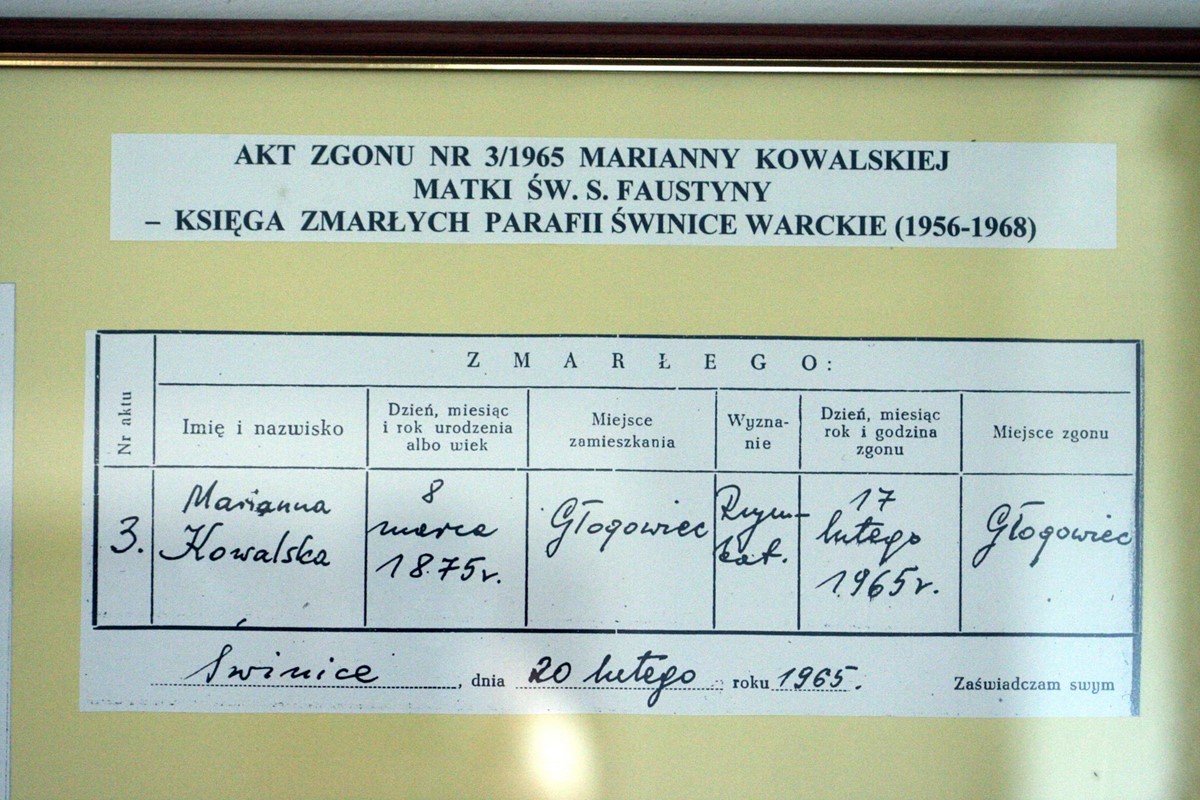 AKT ZGONU NR 3/1965 MARIANNY KOWALSKIEJ
MATKI ŚW. S. FAUSTYNY
– KSIĘGA ZMARŁYCH PARAFII ŚWINICE WARCKIE (1956-1968)
Nr aktu
ZMARŁEGO:
Imię i nazwisko
Dzień, miesiąc
i rok urodzenia
albo wiek
Miejsce
zamieszkania
Wyzna-
nie
Dzień, miesiąc
rok i godzina
zgonu
Miejsce zgonu
3.
Marianna
Kowalska
8
marca
1875r.
Głogowiec
Rzym-
kat.
17
lutego
1965r.
Głogowiec
Świnice, dnia 20 lutego roku 1965. Zaświadczam swym